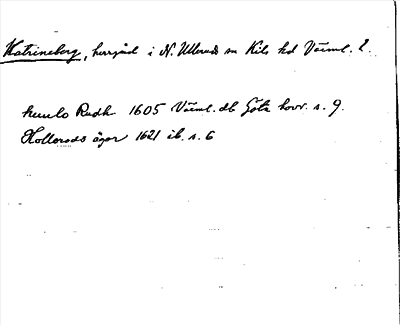 Katrineberg, herrgård i N. Ullerud sn Kils hd Värml. l.
hemlo Rudh 1605 Värml. db Göta hovr. s. 9.
Kollerods ägor 1621 ib. s. 6